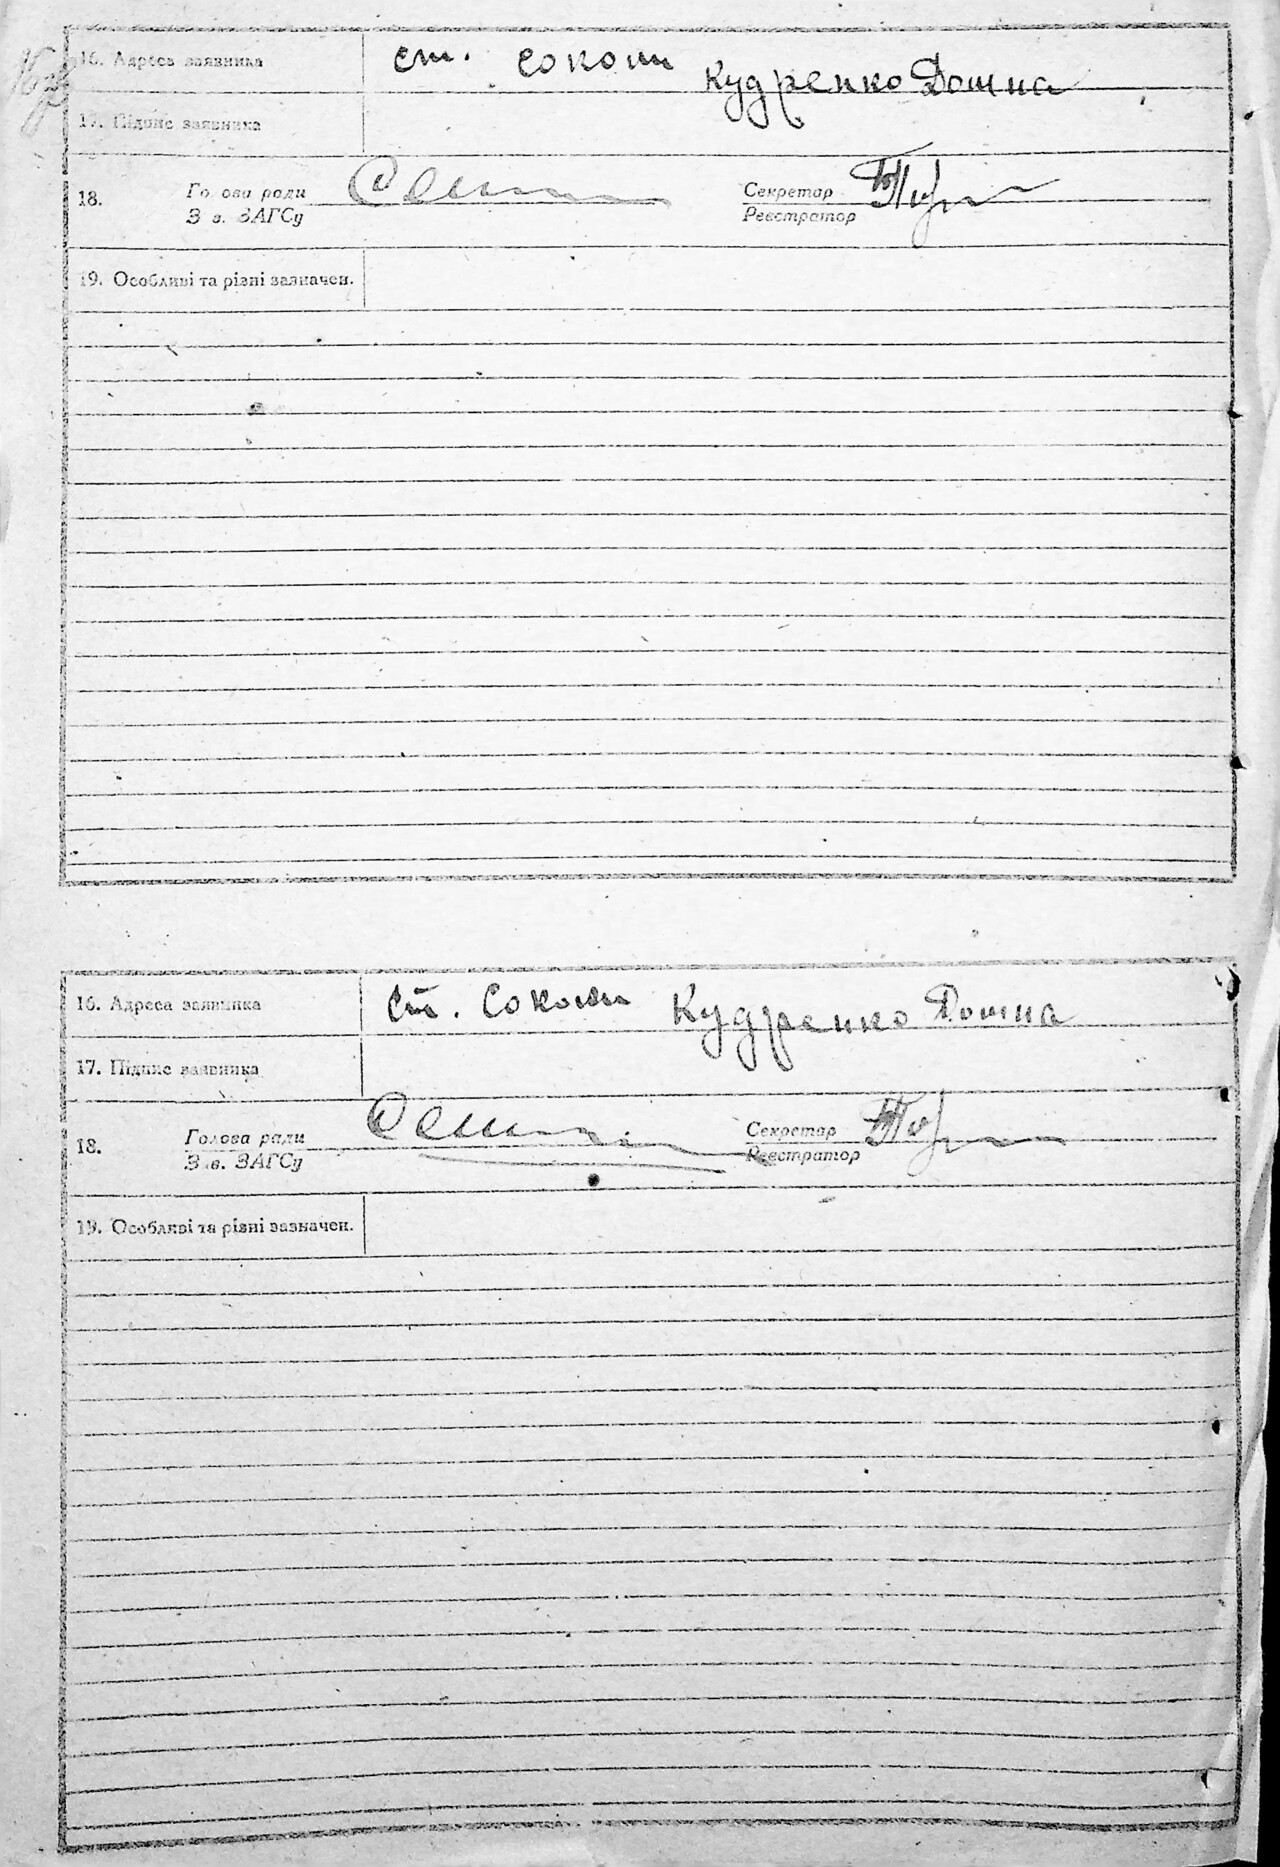 16. Адреса заявника ст. Кудренко Домна
17. Підпис заявника
18. Голова ради Секретар
Зав. ЗАГСу Реєстратор
19. Особливі та різні зазначен.
16. Адреса заявника ст. Кудренко Домна
17. Підпис заявника
18. Голова ради Секретар
Зав. ЗАГСу Реєстратор
19. Особливі та різні зазначен.